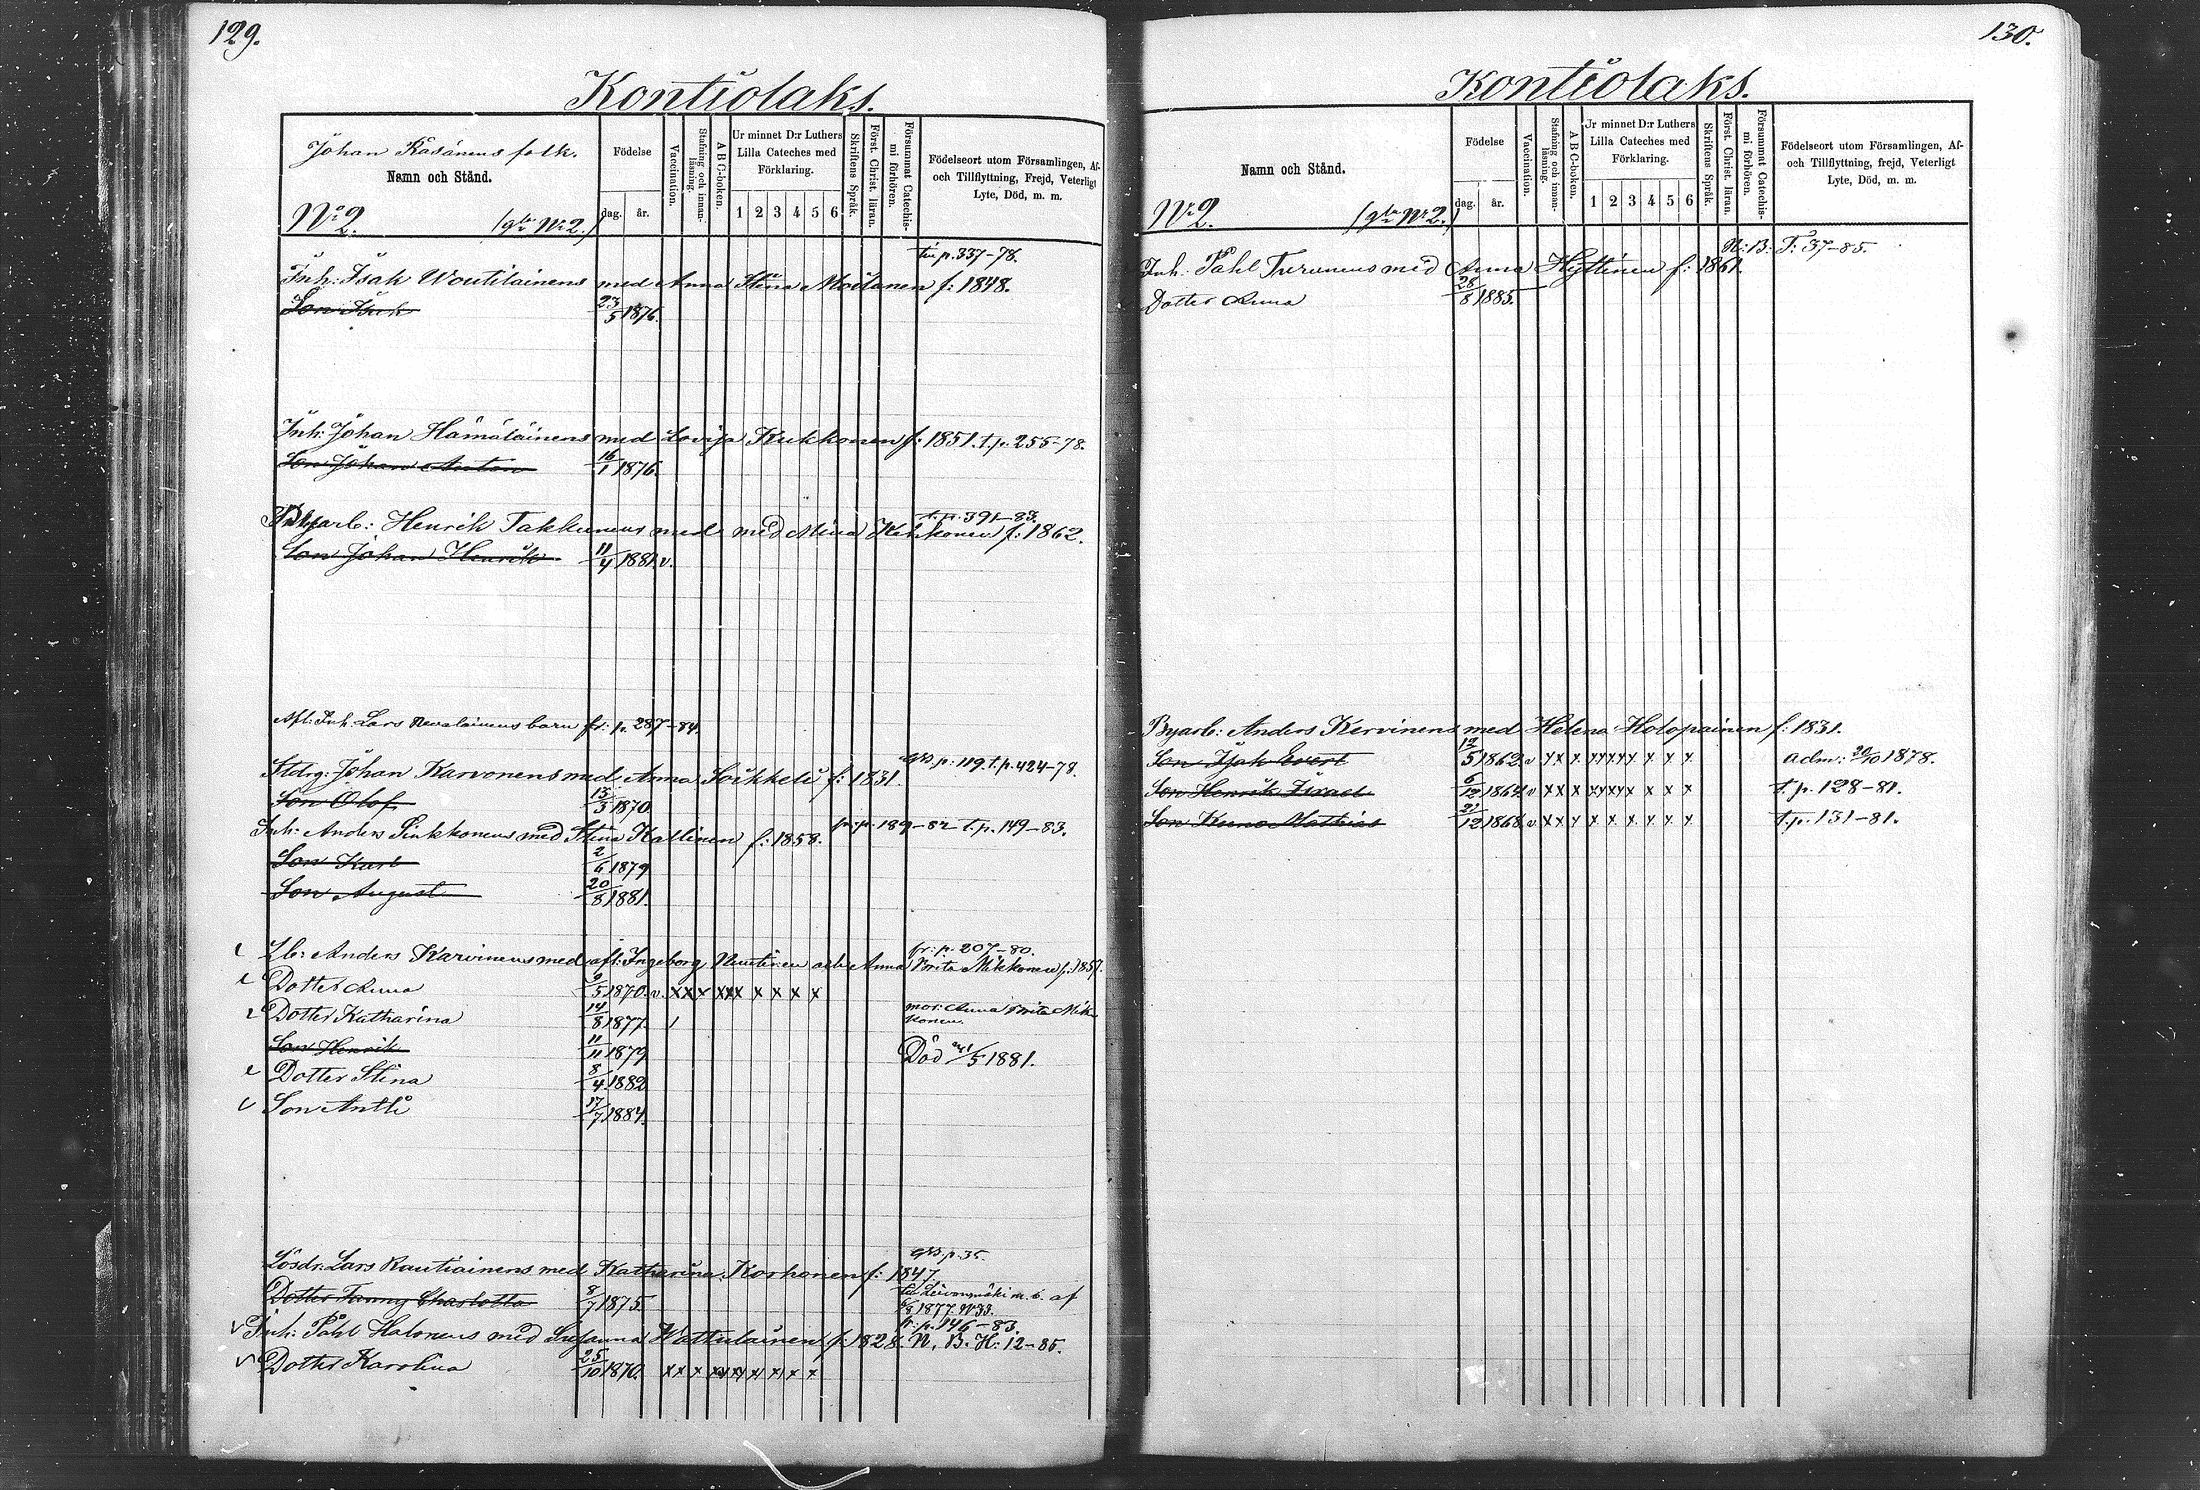 129.
Kontiolaks.
Johan Räsänens folk.
Namn och Stånd.
No 2. (gla No 2.)
Födelse
dag. år.
Vaccination.
Stafning och innanläsning.
A B C-boken.
Ur minnet D:r Luthers Lilla Cateches med Förklaring.
1 2 3 4 5 6
Skriftens Språk.
Först. Christ. läran.
Försummat Catechismi förhören.
Födelseort utom Församlingen, Af- och Tillflyttning, Frejd, Veterligt Lyte, Död, m. m.
p. 337-78.
Inh: Isak Woutilainens med Anna Stina Moilanen f: 1848.
Son Isak 23/5 1876.
Inh: Johan Hämäläinens med Lovisa Kukkonen f: 1851. t.p. 255-78.
Son Johan Anton 16/1 1876.
t. p. 391-83.
arb: Henrik Takkunens med Mina Kukkonen f: 1862.
Son Johan Henrik 11/4 1881 v.
Afl: Inh. Lars Nevalainens barn fr: p. 287-84.
p: 119. t.p. 424-78.
Stdrg: Johan Karvonens med Anna Soikkeli f: 1831.
Son Olof. 13/3 1870
fr: p: 189-82 t.p. 149-83.
Inh: Anders Sinkkonens med Stina Kallinen f: 1858.
Son Karl 2/6 1879
Son August 20/8 1881.
fr: p. 207-80.
Lb: Anders Karvinens med afl: Ingeborg Nuutinen och Anna Brita Mikkonen f: 1857.
Dotter Anna 9/5 1870. v. x x x x x x x x x x
Dotter Katharina 14/8 1877. mor: Anna Brita Mikkonen.
Son Henrik 11/11 1879 Död 21/5 1881.
Dotter Stina 8/4 1882
Son Antti 17/7 1884.
p. 35.
Lösdr: Lars Rautiainens med Katharina Korhonen f: 1847.
Dotter Fanny Charlotta 8/7 1875. till Leivonmäki m. b. af 6/8 1877 N 33.
fr: p. 146-83.
Inh: Påhl Halonens med Susanna Wattulainen f: 1828. N. B. H: 12-85.
Dotter Karolina 25/10 1870. x x x x x x x x x x
130.
Kontiolaks.
Namn och Stånd.
No 2. (gla No 2.)
Födelse
dag. år.
Vaccination.
Stafning och innanläsning.
A B C-boken.
Ur minnet D:r Luthers Lilla Cateches med Förklaring.
1 2 3 4 5 6
Skriftens Språk.
Först. Christ. läran.
Försummat Catechismi förhören.
Födelseort utom Församlingen, Af- och Tillflyttning, frejd, Veterligt Lyte, Död, m. m.
N: B: T: 37-85.
Inh. Påhl Turunens med Anna Hyttinen f: 1861.
Dotter Anna 28/8 1885.
Byarb: Anders Kervinens med Helena Holopainen f: 1831.
Son Isak Evert 12/5 1862. v x x x x x x x x x x adm: 20/10 1878.
Son Henrik Israel 6/12 1864 v x x x x x x x x x x t. p. 128-81.
Son Kuno Mathias 21/12 1868. v x x x x x x x x x t. p. 131-81.